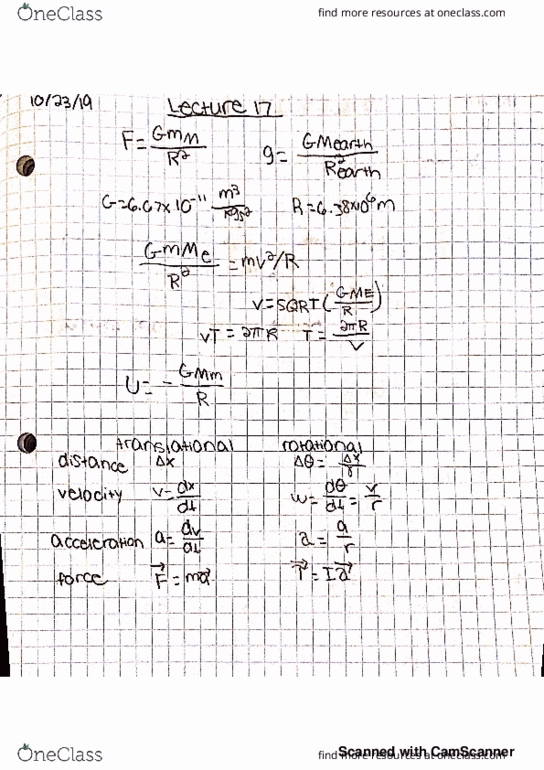 OneClass find more resources at oneclass.com
10/23/19 Lecture 17
F = GmM/R² g = GMearth/R²earth
G = 6.67 x 10⁻¹¹ m³/kgs² R = 6.38x10⁶m
GmMe/R² = mv²/R
v = SQRT(GME/R)
vT = 2πR T = 2πR/V
U = - GMm/R
translational rotational
distance Δx Δθ = Δx/r
velocity v = dx/dt w = dθ/dt = v/r
acceleration a = dv/dt a = a/r
force F⃗ = ma⃗ τ⃗ = Ia⃗
OneClass find more resources at oneclass.com
Scanned with CamScanner